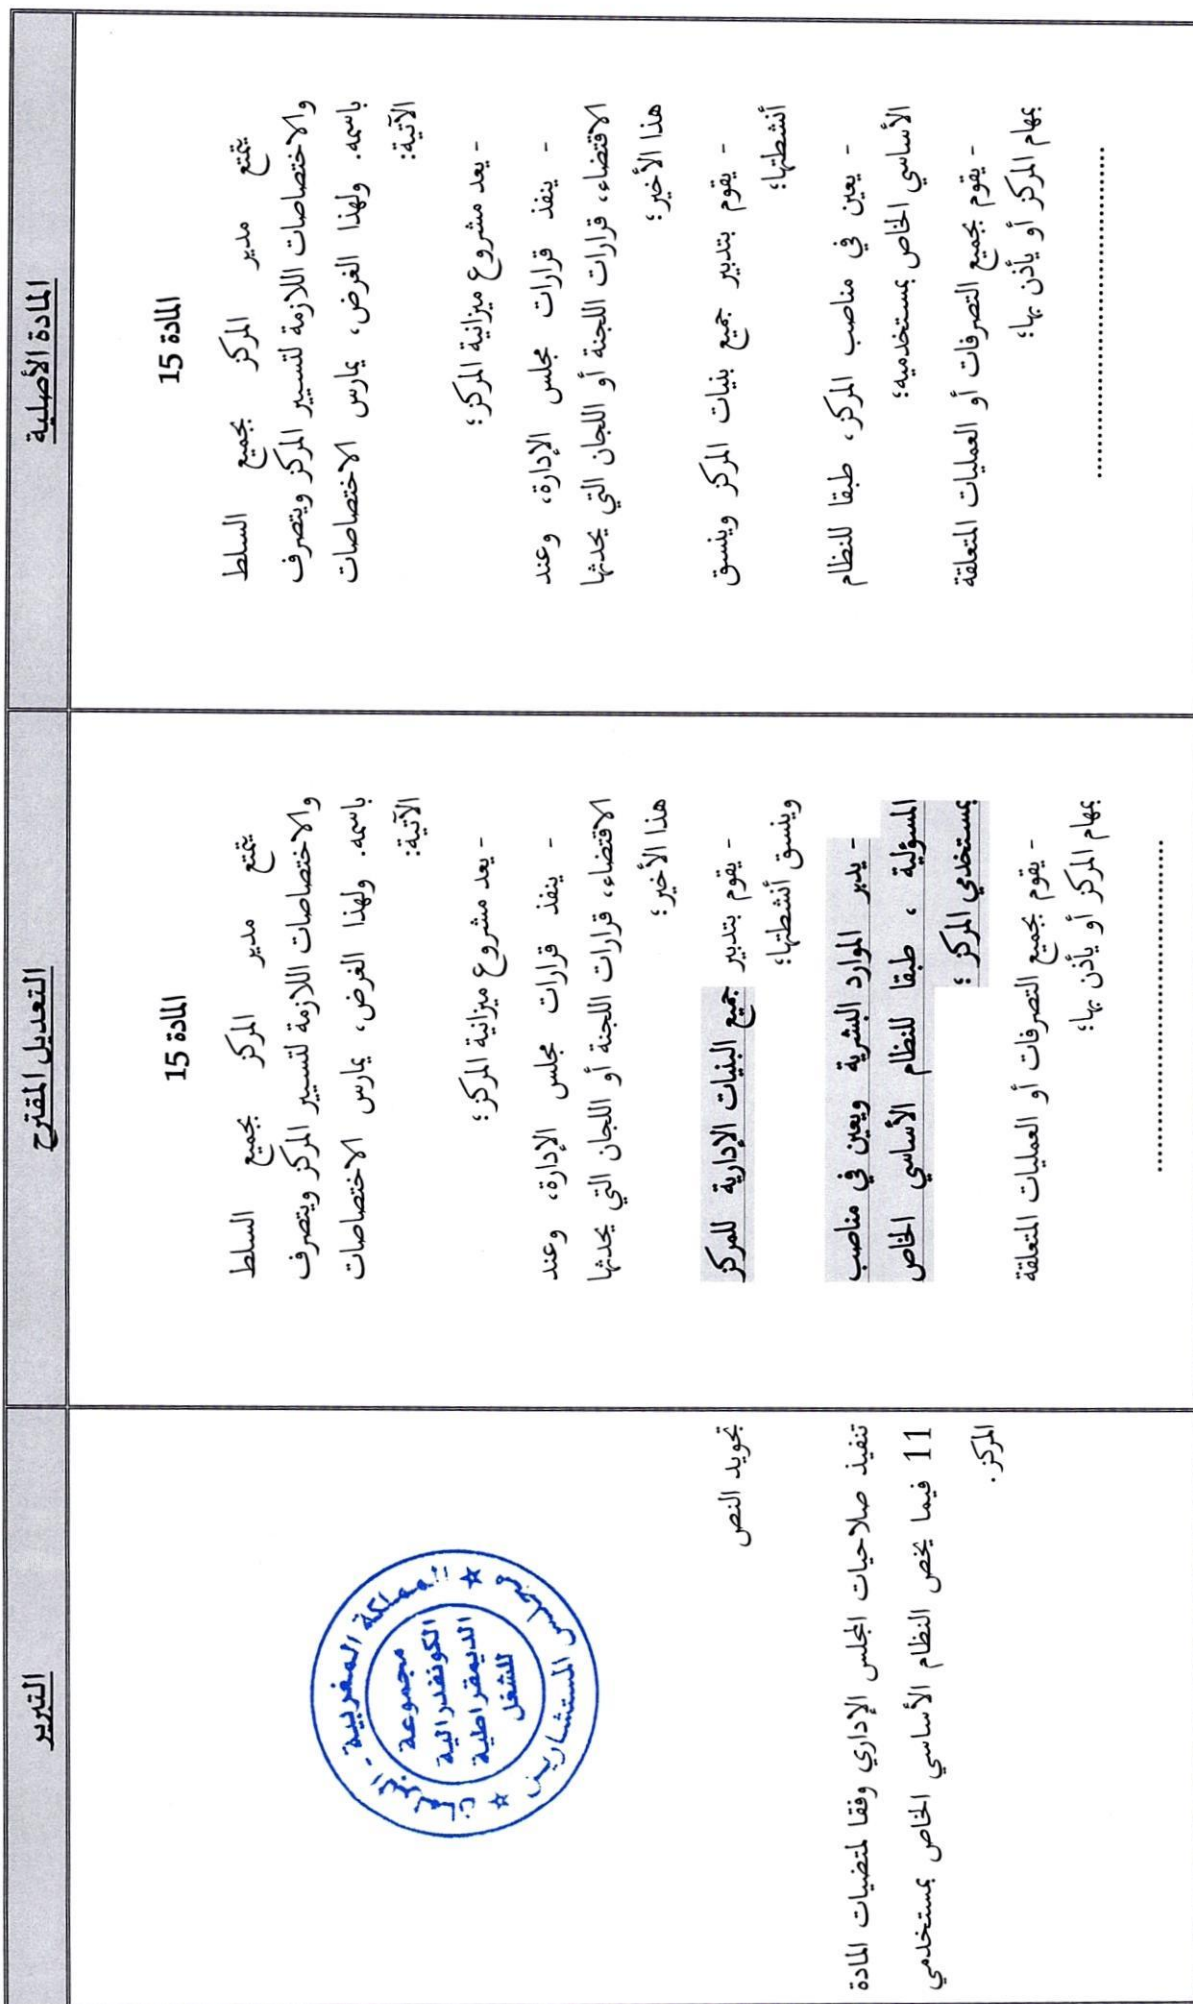 المادة الأصلية
المادة 15
يتمتع مدير المركز بجميع السلط
والاختصاصات اللازمة لتسيير المركز ويتصرف
باسمه. ولهذا الغرض، يمارس الاختصاصات
الآتية:
- يعد مشروع ميزانية المركز؛
- ينفذ قرارات مجلس الإدارة، وعند
الاقتضاء، قرارات اللجنة أو اللجان التي يحدثها
هذا الأخير؛
- يقوم بتدبير جميع بنيات المركز وينسق
أنشطتها؛
- يعين في مناصب المركز، طبقا للنظام
الأساسي الخاص بمستخدميه؛
- يقوم بجميع التصرفات أو العمليات المتعلقة
بمهام المركز أو يأذن بها؛
....................................
التعديل المقترح
المادة 15
يتمتع مدير المركز بجميع السلط
والاختصاصات اللازمة لتسيير المركز ويتصرف
باسمه. ولهذا الغرض، يمارس الاختصاصات
الآتية:
- يعد مشروع ميزانية المركز؛
- ينفذ قرارات مجلس الإدارة، وعند
الاقتضاء، قرارات اللجنة أو اللجان التي يحدثها
هذا الأخير؛
- يقوم بتدبير جميع البنيات الإدارية للمركز
وينسق أنشطتها؛
- يدبر الموارد البشرية ويعين في مناصب
المسؤلية ، طبقا للنظام الأساسي الخاص
بمستخدمي المركز ؛
- يقوم بجميع التصرفات أو العمليات المتعلقة
بمهام المركز أو يأذن بها؛
....................................
التبرير
المملكة المغربية - البرلمان
مجلس المستشارين
مجموعة
الكونفدرالية
الديمقراطية
للشغل
تجويد النص
تنفيذ صلاحيات المجلس الإداري وفقا لمتضيات المادة
11 فيما يخص النظام الأساسي الخاص بمستخدمي
المركز.